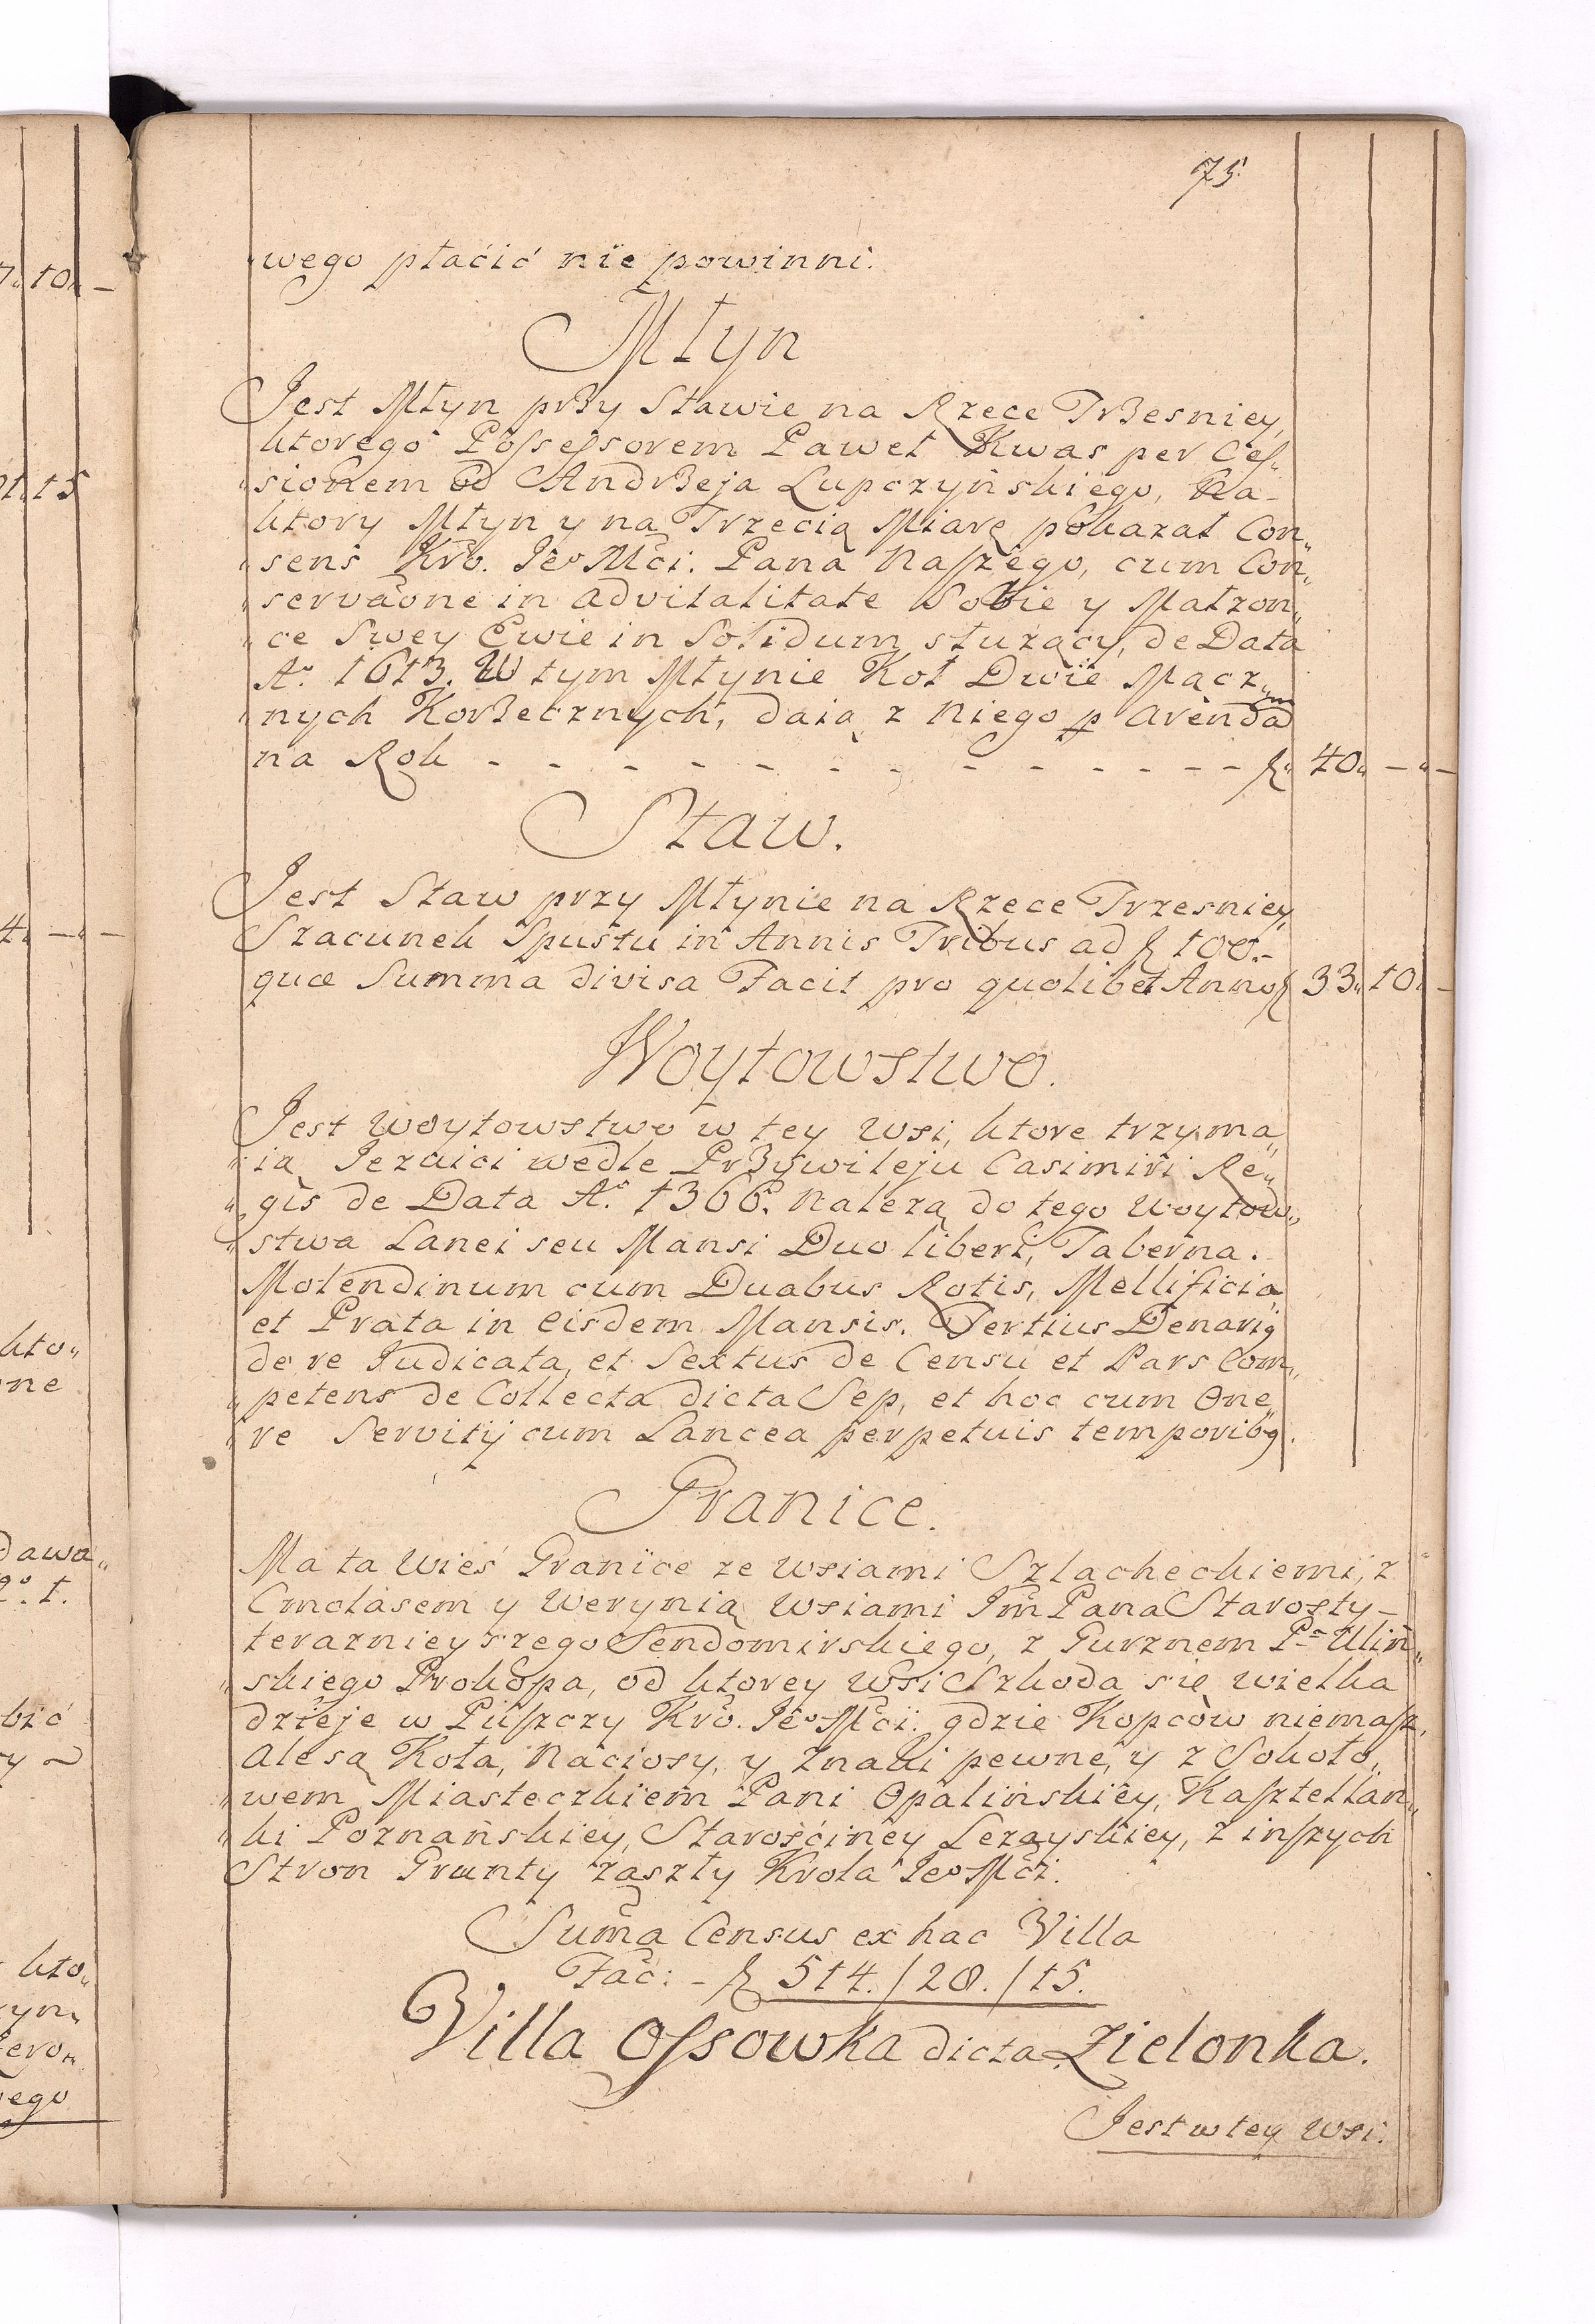 75
wego płaćić nie powinni.
Młyn
Jest Młyn przy Stawie na Rzece Trzesniey,
ktorego Possessorem Paweł Kwas per Ces„
„sionem od Andrzeja Lupczyńskiego, Na-
„ktory Młyn y na Trzecią Miarę pokazał Con„
„sens Kro. Je° Mći. Pana Naszego, cum Con„
„servaone in advitalitate Sobie y Małzon„
„ce Swey Ewie in Solidum służący, de Data
A° 1613. W tym Młynie Koł Dwie Mącz„
„nych Korzecznych, daią z Niego p Arenda
na Rok - - - - - - - - - - - - f„ 40„ — „ —
Staw.
Jest Staw przy Młynie na Rzece Trzesniey,
Szacunek Spustu in Annis Tribus ad f 100.-
quæ Summa divisa Facit pro quolibet Anno f 33„ 10„ —
Woytowstwo.
Jest Woytowstwo w tey Wsi, ktore trzyma„
„ią Jezuici wedle Przywileju Casimiri Re„
„gis de Data A° 1366. Nalezą do tego Woytow„
„stwa Lanei seu Mansi Duo liberi, Taberna.
Molendinum cum Duabus Rotis, Mellificia
et Prata in eisdem Mansis. Tertius Denari9
de re Judicata, et Sextus de Censu et Pars Com„
„petens de Collecta dicta Sep, et hoc cum One„
„re Servitij cum Lancea perpetuis temporib9.
Granice.
Ma ta Wieś Granice ze Wsiami Szlacheckiemi, z
Cmolasem y Werynią Wsiami Jm Pana Starosty-
teraznieyszego Sendomirskiego, z Gurznem P. Uliń„
„skiego Prokopa, od ktorey Wsi Szkoda się wielka
dzieje w Puszczy Kro. Je° Mći. gdzie Kopców niemasz,
ale są Koła, Naciosy, y Znaki pewne, y z Sokoło„
„wem Miasteczkiem Pani Opalińskiey, Kasztellan„
„ki Poznańskiey, Starośćiney Lezayskiey, z inszych
Stron Grunty zaszły Krola Je° Mći.
Suma Census ex hac Villa
Fac: - f 514./20./15.
Villa Ossowka dicta Zielonka.
Jest w tey Wsi.